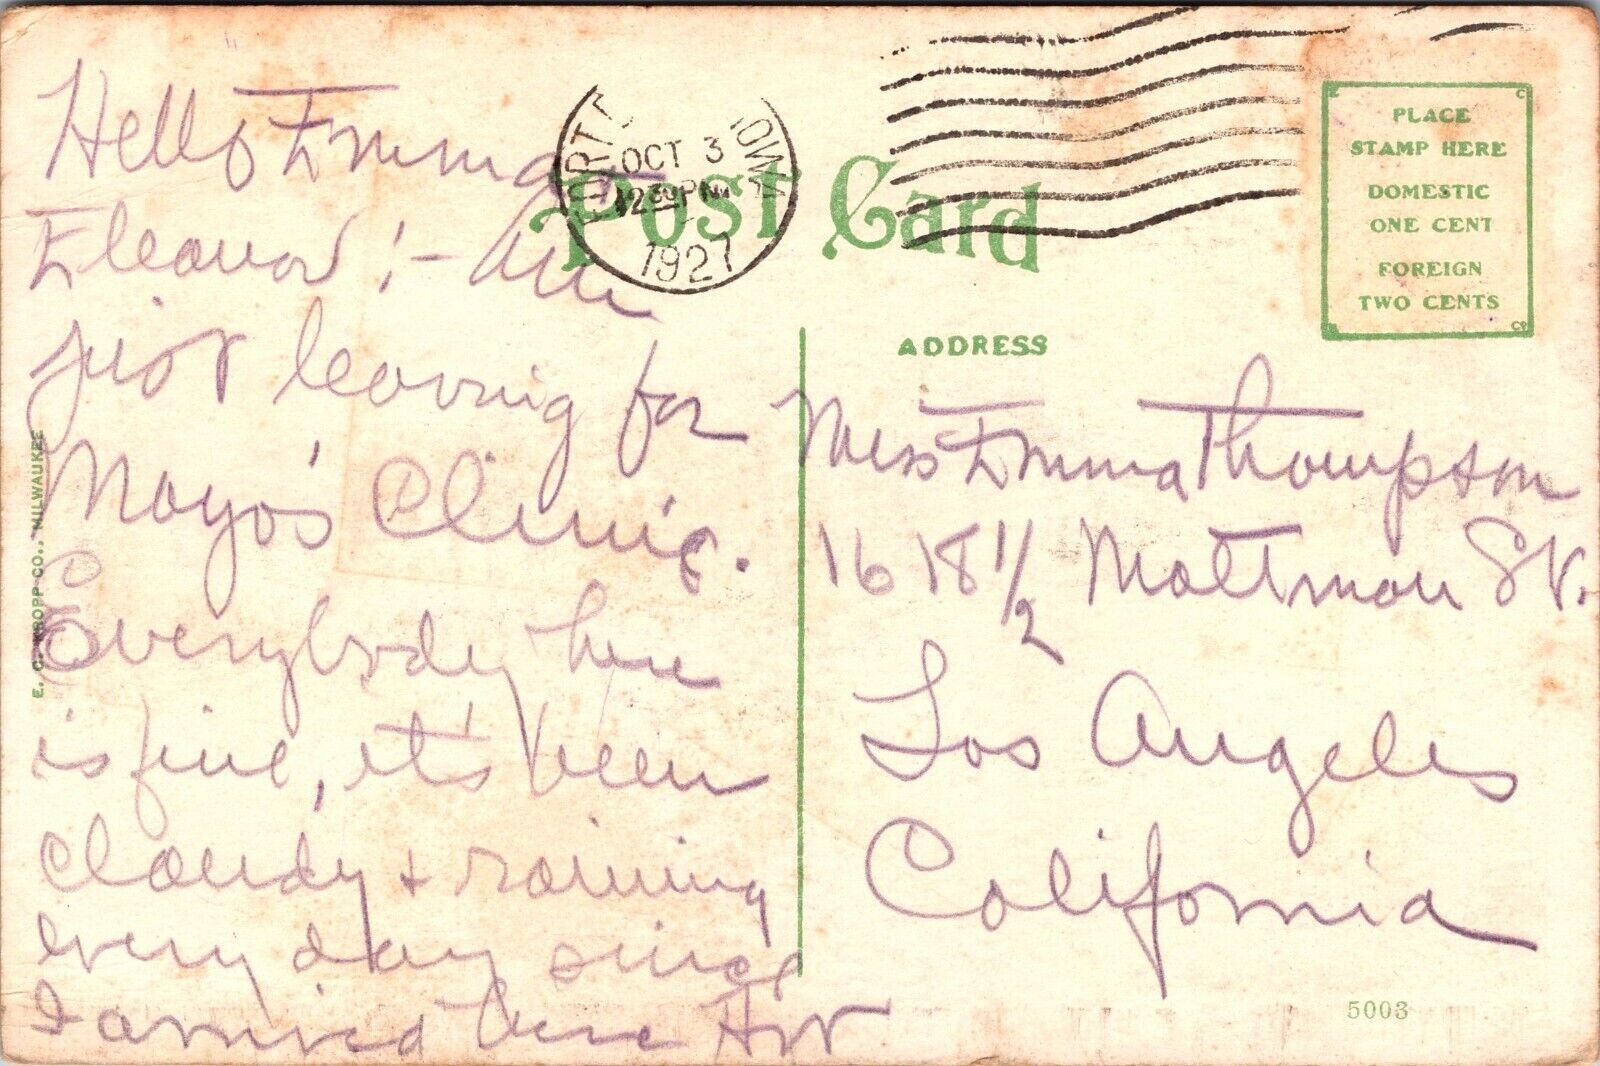 Hello Emma
Eleanor! - Am
just leaving for
Mayo's Clinic.
Everybody here
is fine, it's been
cloudy + raining
every day since
I arrived here
FORT IOWA
OCT 3
12 30 PM
1927
Post Card
PLACE
STAMP HERE
DOMESTIC
ONE CENT
FOREIGN
TWO CENTS
ADDRESS
Miss Emma Thompson
1618 1/2 Mattman St.
Los Angeles
California
E. C. KROPP CO., MILWAUKEE
5003